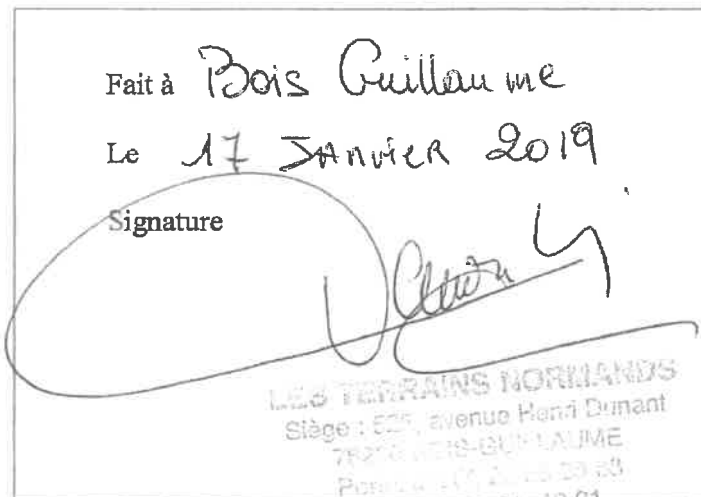 Fait à Bois Guillaume
Le 17 JANVIER 2019
Signature
LES TERRAINS NORMANDS
Siège : avenue Henri Dunant
BOIS-GUILLAUME